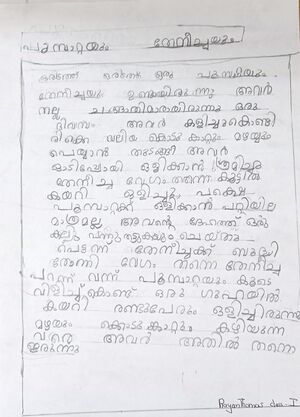 പൂമ്പാറ്റയും തേനീച്ചയും
ഒരിടത്ത് ഒരിടത്ത് ഒരു പൂമ്പാറ്റയും
തേനീച്ചയും ഉണ്ടായിരുന്നു അവർ
നല്ല ചങ്ങാതിമാരായിരുന്നു ഒരു
ദിവസം അവർ കളിച്ചുകൊണ്ടി
രിക്കെ വലിയ കൊടുങ്കാറ്റും മഴയും
പെയ്യാൻ തുടങ്ങി അവർ
ഓടിപ്പോയി ഒളിക്കാൻ ശ്രമിച്ചു
തേനീച്ച വേഗം തന്നെ കൂട്ടിൽ
കയറി ഒളിച്ചു, പക്ഷെ
പൂമ്പാറ്റക്ക് ഒളിക്കാൻ പറ്റിയില്ല
മാത്രമല്ല അവന്റെ ദേഹത്ത് ഒരു
കല്ലും വന്നു വീഴുകയും ചെയ്തു
പെട്ടന്ന് തേനീച്ചക്ക് ബുദ്ധി
തോന്നി വേഗം തന്നെ തേനീച്ച
പറന്ന് വന്ന് പൂമ്പാറ്റയും കൂടെ
വിളിച്ച്കൊണ്ട് ഒരു ഗുഹയിൽ
കയറി രണ്ടുപേരും ഒളിച്ചിരുന്നു
മഴയും കൊടുങ്കാറ്റും കഴിയുന്ന
വരെ അവർ അതിൽ തന്നെ
ഇരുന്നു
Rayan Thomas class - I